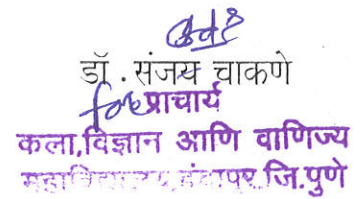 डॉ . संजय चाकणे
for प्राचार्य
कला,विज्ञान आणि वाणिज्य
महाविद्यालय,इंदापुर,जि.पुणे